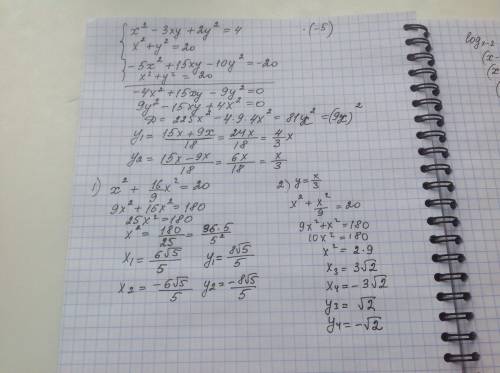 x² - 3xy + 2y² = 4 ·(-5)
x² + y² = 20
-5x² + 15xy - 10y² = -20
x² + y² = 20
-4x² + 15xy - 9y² = 0
9y² - 15xy + 4x² = 0
D = 225x² - 4·9·4x² = 81x² = (9x)²
y₁ = (15x + 9x)/18 = 24x/18 = 4/3 x
y₂ = (15x - 9x)/18 = 6x/18 = x/3
1) x² + 16/9 x² = 20
9x² + 16x² = 180
25x² = 180
x² = 180/25 = 36·5/5²
x₁ = 6√5/5 y₁ = 8√5/5
x₂ = -6√5/5 y₂ = -8√5/5
2) y = x/3
x² + x²/9 = 20
9x² + x² = 180
10x² = 180
x² = 2·9
x₃ = 3√2
x₄ = -3√2
y₃ = √2
y₄ = -√2
(x-
(x